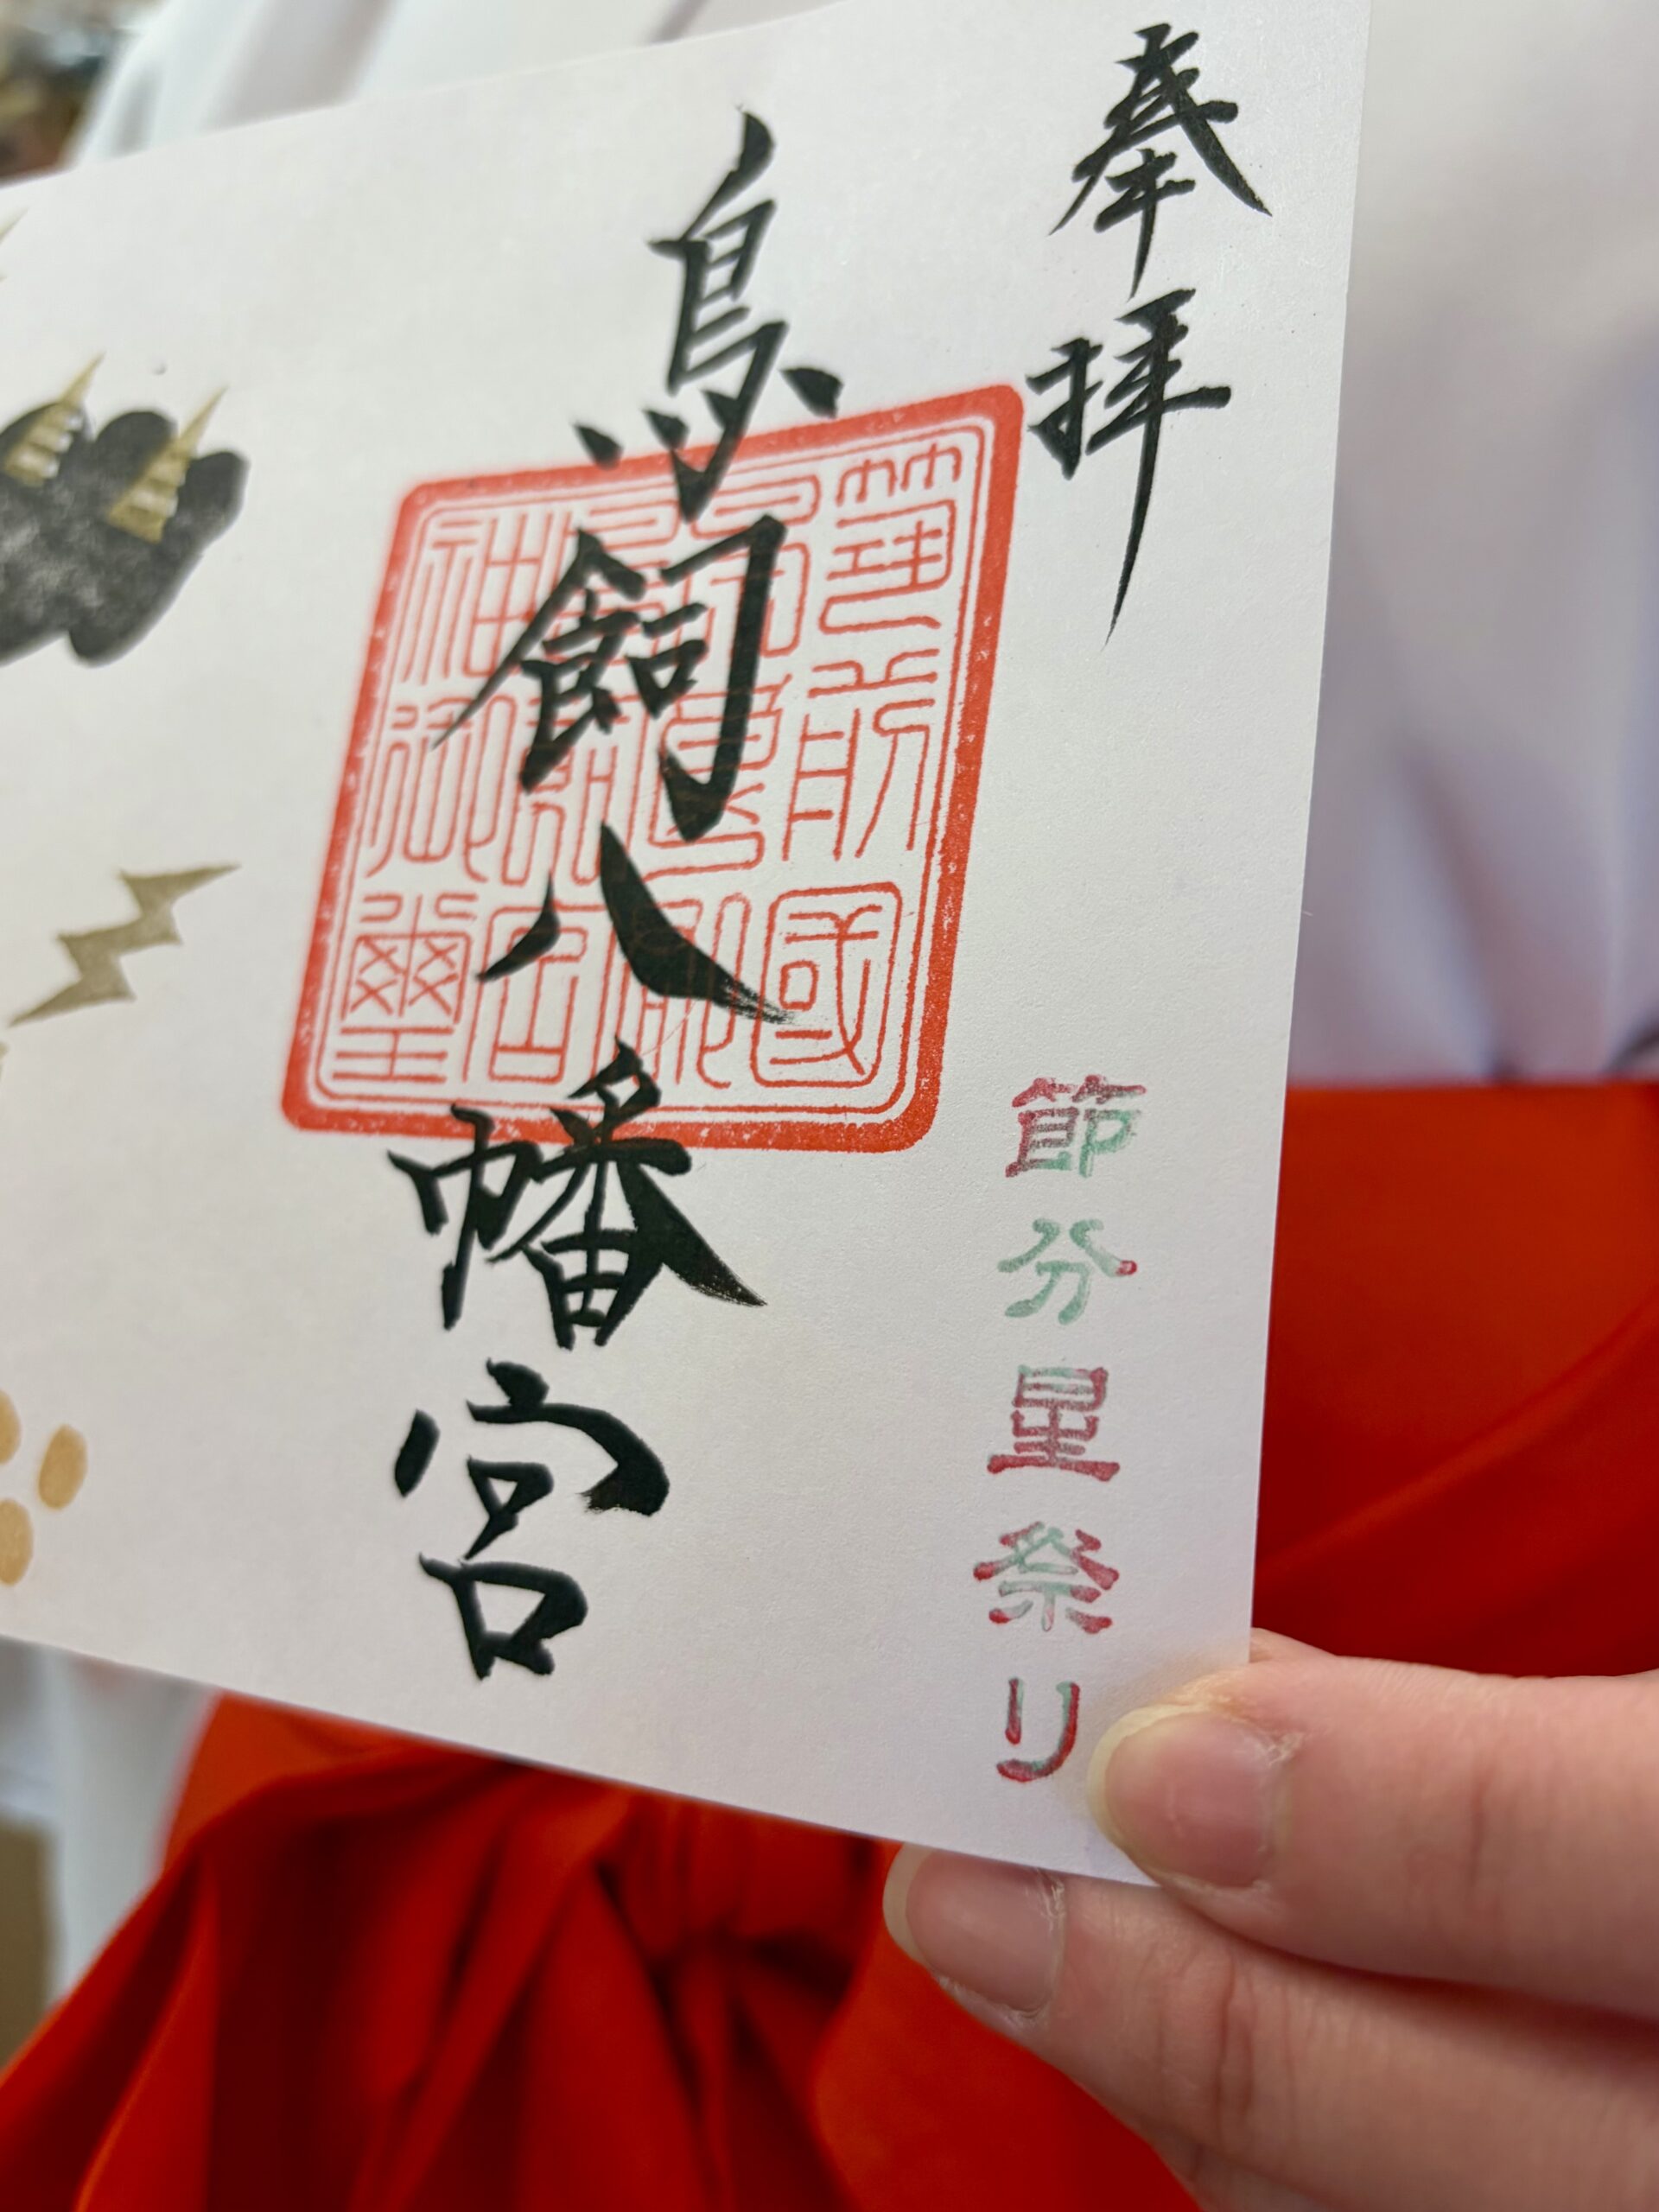 奉拝
鳥飼八幡宮
節分星祭り
筑前國
宮
神御璽